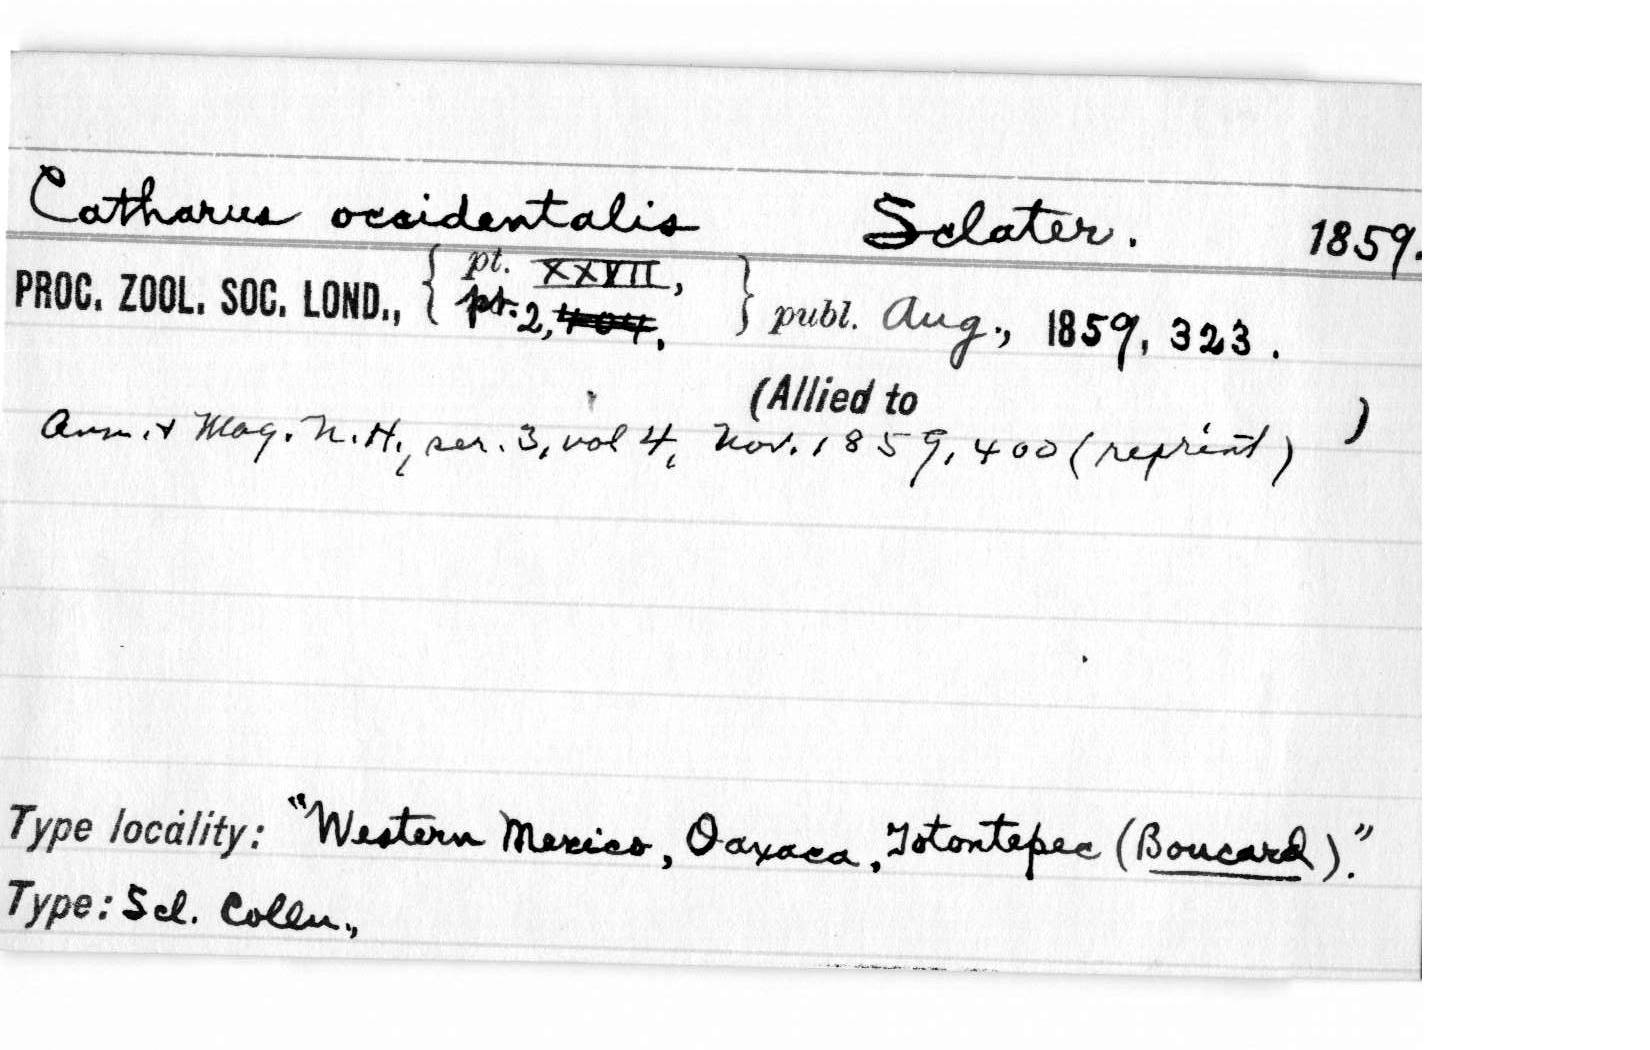 Catharus occidentalis Sclater. 1859.
PROC. ZOOL. SOC. LOND., { pt. XXVII, pt. 2, 404. } publ. Aug., 1859, 323.
(Allied to )
Ann. & Mag. N. H., ser. 3, vol 4, Nov. 1859, 400 (reprint)
Type locality: "Western Mexico, Oaxaca, Totontepec (Boucard)."
Type: Scl. Colln.,